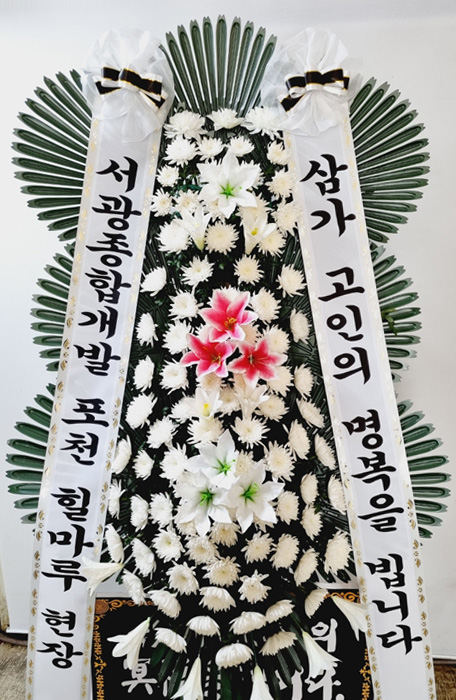 서광종합개발 포천 힐마루 현장
삼가 고인의 명복을 빕니다